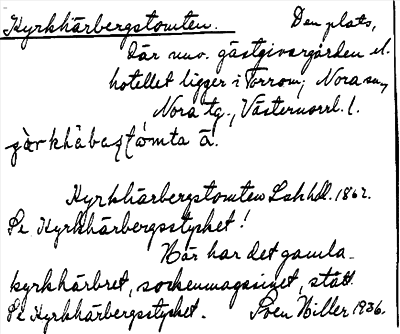 Kyrkhärbergstomten. Den plats,
där nuv. gästgivargården el.
hotellet ligger i Torrom, Nora sn,
Nora tg., Västernorrl. l.
Kyrkhärbergstomten Lskhdl. 1862.
Se Kyrkhärbergsstycket!
Här har det gamla
kyrkhärbret, sockenmagasinet, stått.
Se Kyrkhärbergsstycket. Sven Hiller 1936.